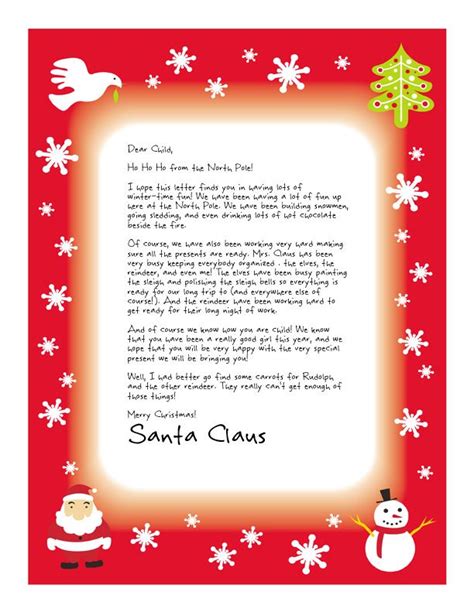 Dear Child,
Ho Ho Ho from the North Pole!
I hope this letter finds you in having lots of
winter-time fun! We have been having a lot of fun up
here at the North Pole. We have been building snowmen,
going sledding, and even drinking lots of hot chocolate
beside the fire.
Of course, we have also been working very hard making
sure all the presents are ready. Mrs. Claus has been
very busy keeping everybody organized - the elves, the
reindeer, and even me! The elves have been busy painting
the sleigh and polishing the sleigh bells so everything is
ready for our long trip to (and everywhere else of
course!). And the reindeer have been working hard to
get ready for their long night of work.
And of course we know how you are child! We know
that you have been a really good girl this year, and we
hope that you will be very happy with the very special
present we will be bringing you!
Well, I had better go find some carrots for Rudolph
and the other reindeer. They really can't get enough of
those things!
Merry Christmas!
Santa Claus